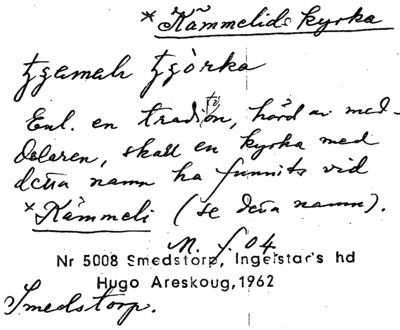 * Kämmelids kyrka
tzemah tzòrka
Enl. en tradition, hörd av med-
delaren, skall en kyrka med
detta namn ha funnits vid
* Kämmeli (se detta namn).
M. f. 04
Nr 5008 Smedstorp, Ingelstar's hd
Hugo Areskoug, 1962
Smedstorp.